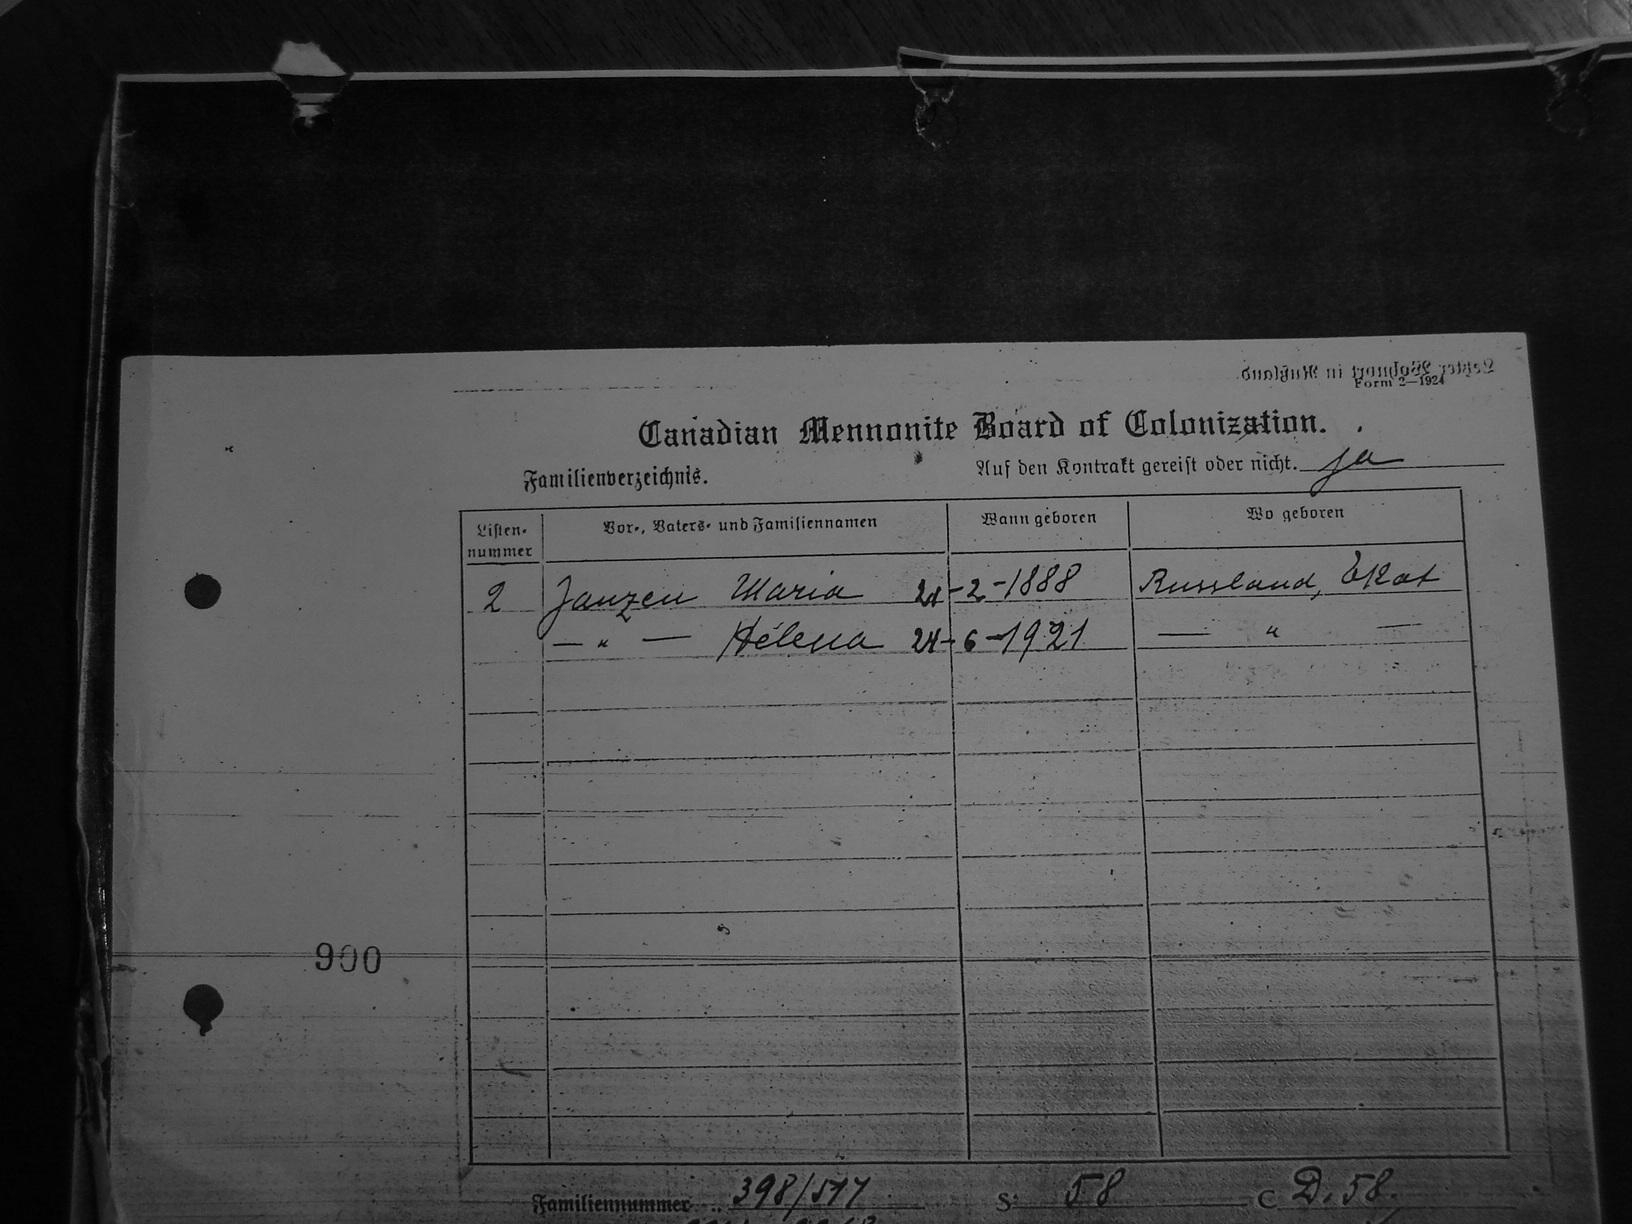 Letzter Wohnort in Rußland
Form 2—1924
Canadian Mennonite Board of Colonization.
Familienverzeichnis. Auf den Kontrakt gereist oder nicht. ja
Listen-nummer Vor-, Vaters- und Familiennamen Wann geboren Wo geboren
2 Janzen Maria 21-2-1888 Russland, Ekat
— " — Helena 24-6-1921 — " —
900
Familiennummer 398/577 S: 58 C D. 58.